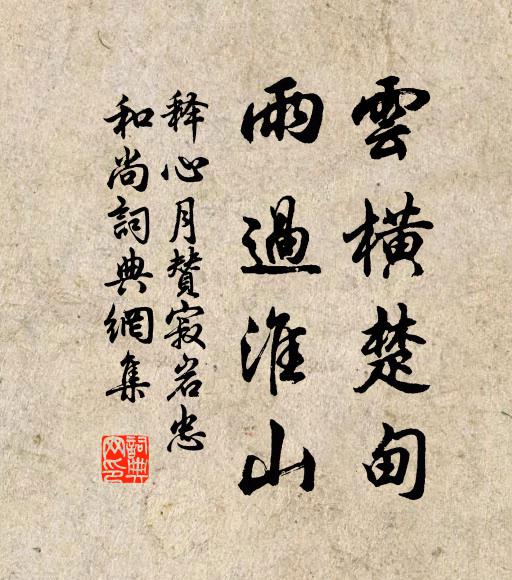 雲橫楚甸
雨過淮山
释心月贊寂岩忠
和尚詞典網集
詞典網印